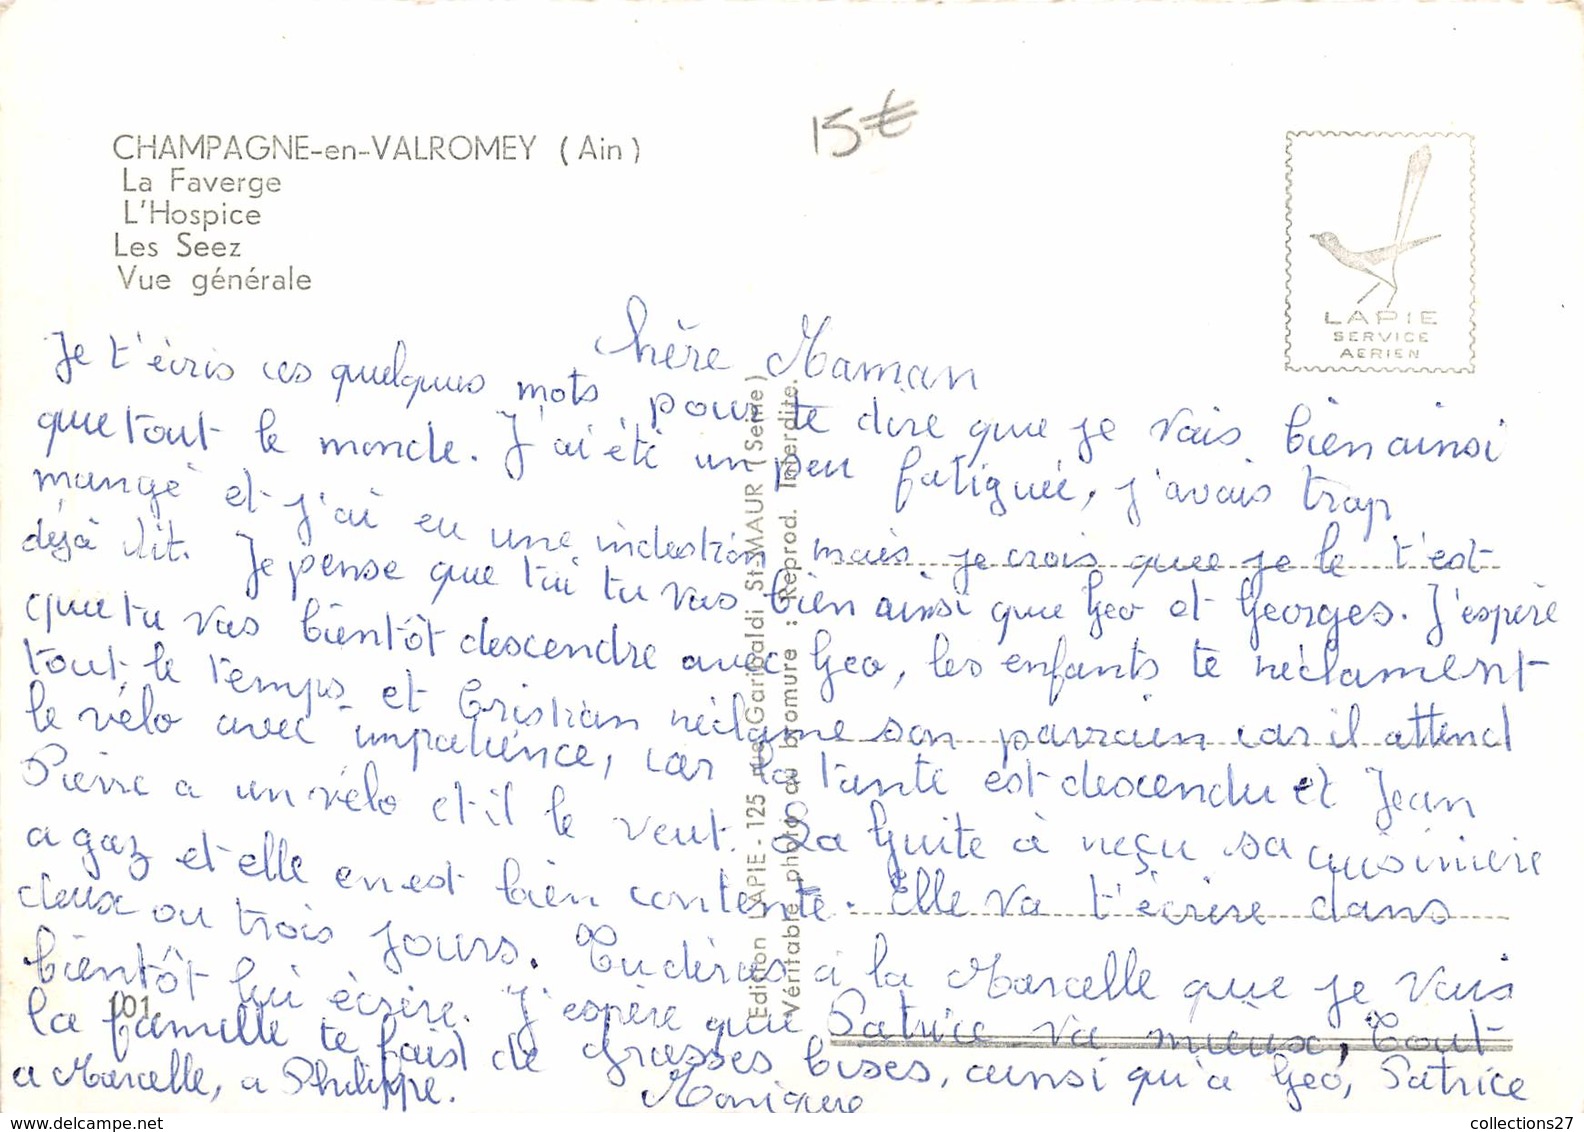 CHAMPAGNE-en-VALROMEY (Ain)
La Faverge
L'Hospice
Les Seez
Vue générale
15€
LAPIE
SERVICE
AERIEN
Chère Maman
Je t'écris ces quelques mots pour te dire que je vais bien ainsi
que tout le monde. J'ai été un peu fatiguée, j'avais trop
mangé et j'ai eu une indestion mais je crois que je le t'est
déjà dit. Je pense que tui tu vas bien ainsi que Géo et Georges. J'espère
que tu vas bientôt descendre avec Géo, les enfants te réclament
tout le temps et Cristian réclame son parrain car il attend
le vélo avec impatience, car la tante est descendu et Jean
Pierre a un vélo et il le veut. La Guite à reçu sa cuisinière
a gaz et elle en est bien contente. Elle va t'écrire dans
deux ou trois jours. Tu diras à la Marcelle que je vais
bientôt lui écrire. J'espère que Patrice va mieux, Tout
la famille te fais de grosses bises, ainsi qu'a Géo, Patrice
a Marcelle, a Philippe. Monique
101
Edition LAPIE - 125 rue Garibaldi St-MAUR (Seine)
Véritable photo au bromure : Reprod. Interdite.
collections27